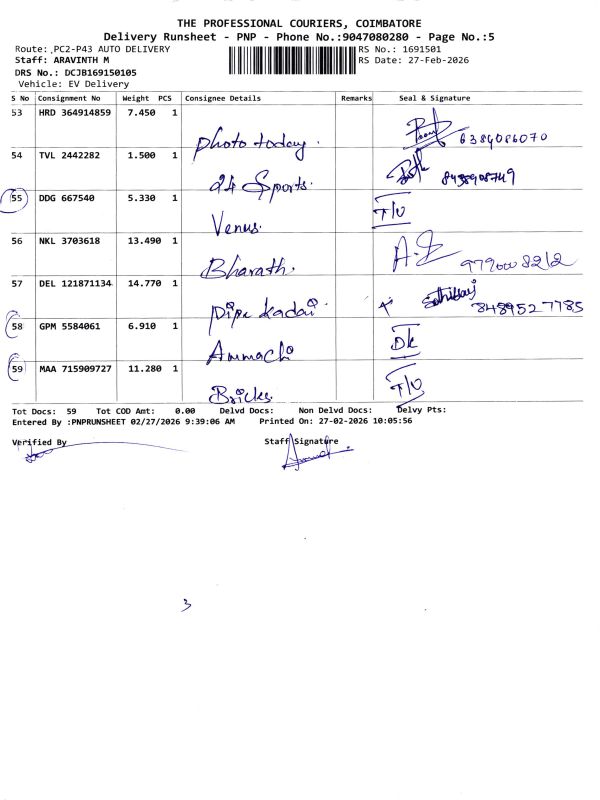 THE PROFESSIONAL COURIERS, COIMBATORE
Delivery Runsheet - PNP - Phone No.:9047080280 - Page No.:5
Route: PC2-P43 AUTO DELIVERY RS No.: 1691501
Staff: ARAVINTH M RS Date: 27-Feb-2026
DRS No.: DCJB169150105
Vehicle: EV Delivery
S No Consignment No Weight PCS Consignee Details Remarks Seal & Signature
53 HRD 364914859 7.450 1
photo today. 6384086070
54 TVL 2442282 1.500 1
24 Sports.
55 DDG 667540 5.330 1
Venus. T/U
56 NKL 3703618 13.490 1
Bharath.
57 DEL 121871134 14.770 1
Pipe Kadai 8489527785
58 GPM 5584061 6.910 1
Ammachi DK
59 MAA 715909727 11.280 1
Bricks. T/U
Tot Docs: 59 Tot COD Amt: 0.00 Delvd Docs: Non Delvd Docs: Delvy Pts:
Entered By :PNPRUNSHEET 02/27/2026 9:39:06 AM Printed On: 27-02-2026 10:05:56
Verified By Staff Signature
3